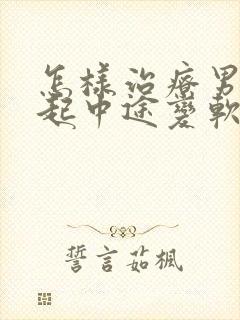 怎樣治療男
起中途變軟
誓言茹楓